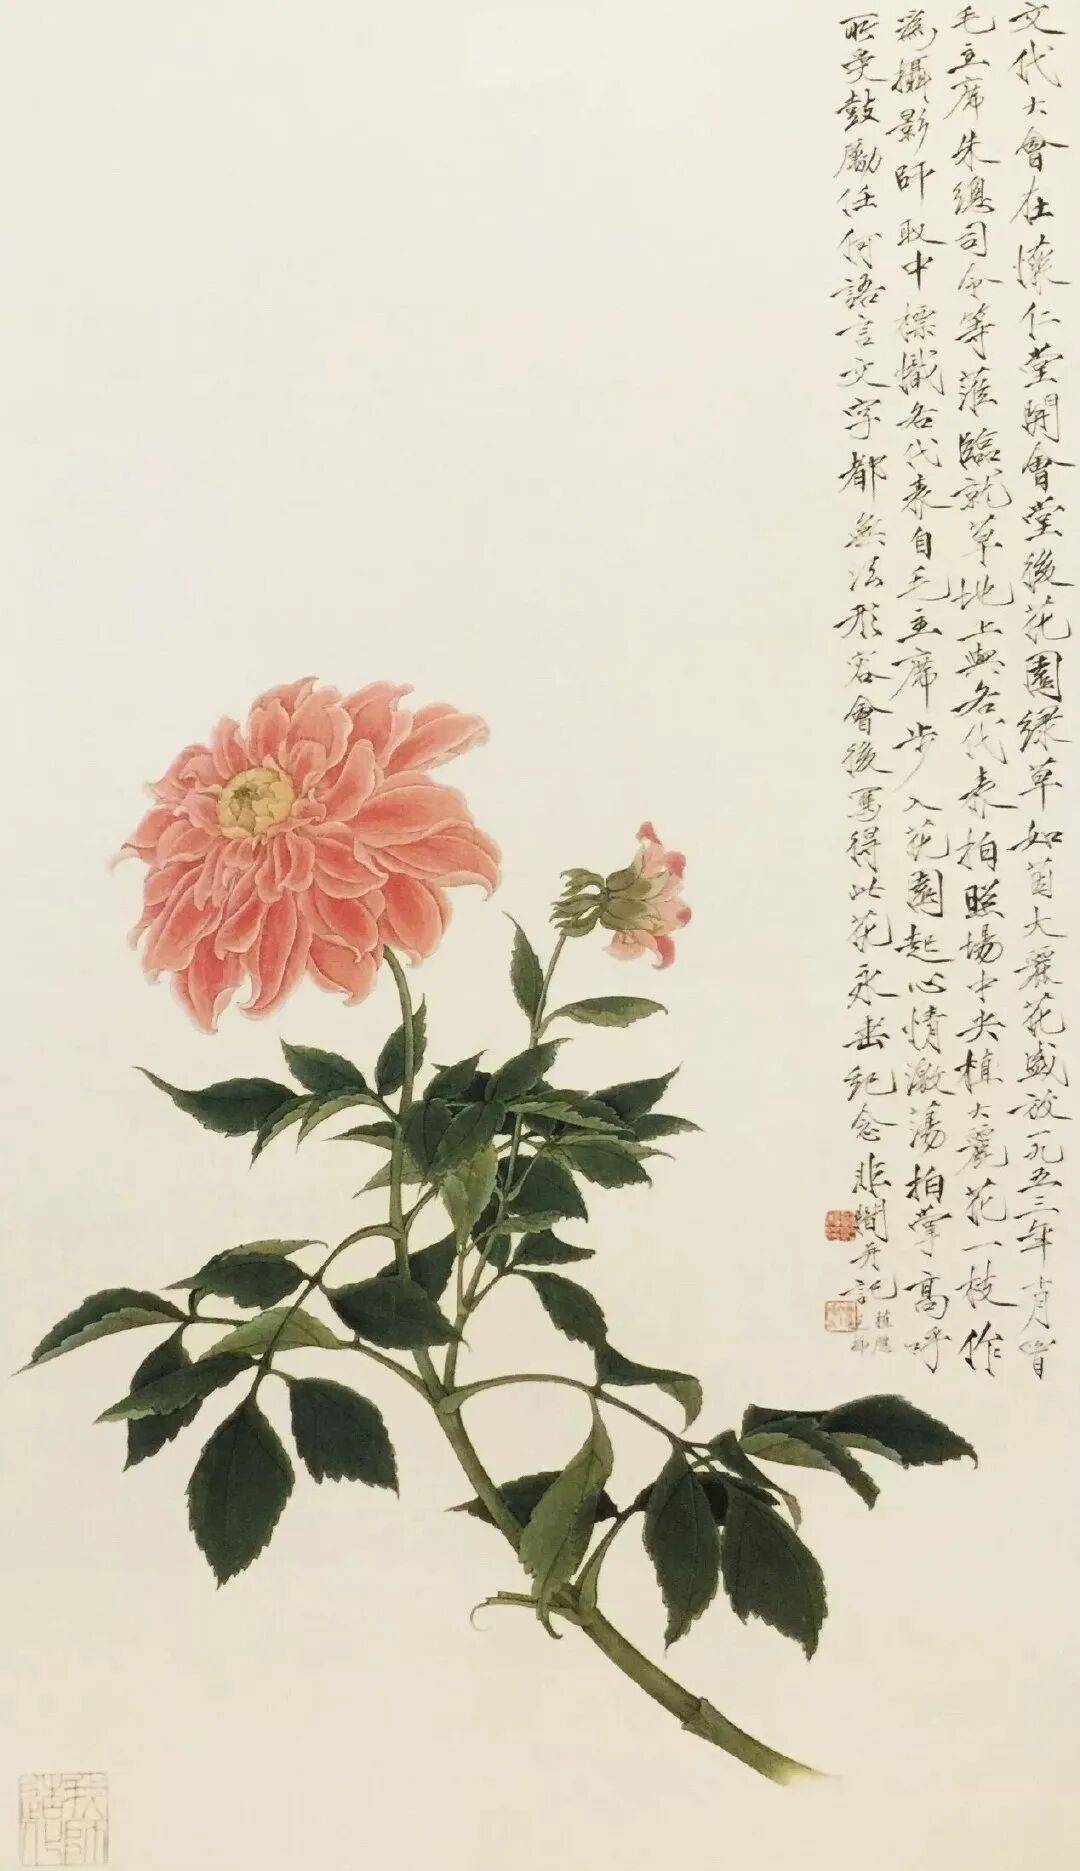 文代大會在懷仁堂開會堂後花園綠草如茵大麗花盛放一九五三年十月四日
毛主席朱總司令等蒞臨就草地上與各代表拍照場中央植大麗花一枝作
為攝影師取中標幟各代表自毛主席步入花園起心情激蕩拍掌高呼
所受鼓勵任何語言文字都無法形容會後寫得此花永垂紀念非闇并記
植應
之師
我師
造化